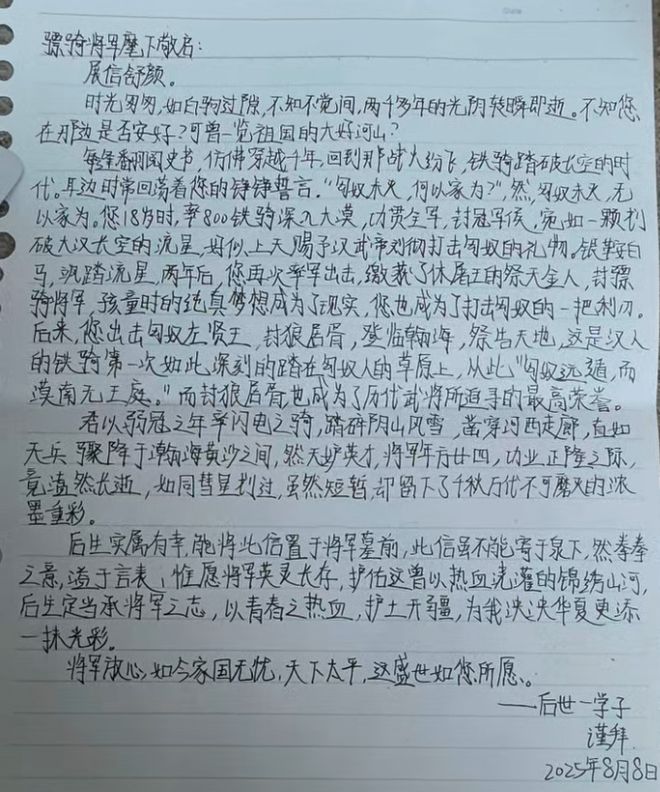 骠骑将军麾下敬启:
展信舒颜。
时光匆匆,如白驹过隙,不知不觉间,两千多年的光阴转瞬即逝。不知您
在那边是否安好?可曾一览祖国的大好河山?
每每翻阅史书,仿佛穿越千年,回到那战火纷飞,铁骑踏破长空的时
代。耳边时常回荡着您的铮铮誓言。“匈奴未灭,何以家为?”,然,匈奴未灭,无
以家为。您18岁时,率800铁骑深入大漠,功贯全军,封冠军侯,宛如一颗划
破大汉长空的流星,好似上天赐予汉武帝刘彻打击匈奴的礼物。银鞍白
马,飒踏流星,两年后,您再次率军出击,缴获了休屠王的祭天金人,封骠
骑将军,孩童时的纯真梦想成为了现实,您也成为了打击匈奴的一把利刃。
后来,您出击匈奴左贤王,封狼居胥,登临瀚海,祭告天地,这是汉人
的铁骑第一次如此深刻的踏在匈奴人的草原上,从此“匈奴远遁,而
漠南无王庭。”而封狼居胥也成为了历代武将所追寻的最高荣誉。
君以弱冠之年率闪电之骑,踏碎阴山风雪,凿穿河西走廊,直如
天兵骤降于瀚海黄沙之间,然天妒英才,将军年方廿四,功业正隆之际,
竟溘然长逝,如同彗星划过,虽然短暂,却留下了千秋万代不可磨灭的浓
墨重彩。
后生实属有幸,能将此信置于将军墓前,此信虽不能寄于泉下,然拳拳
之意,溢于言表,惟愿将军英灵长存,护佑这曾以热血浇灌的锦绣山河,
后生定当承将军之志,以青春之热血,护土开疆,为我泱泱华夏更添
一抹光彩。
将军放心,如今家国无忧,天下太平,这盛世如您所愿。
——后世一学子
谨拜
2025年8月8日